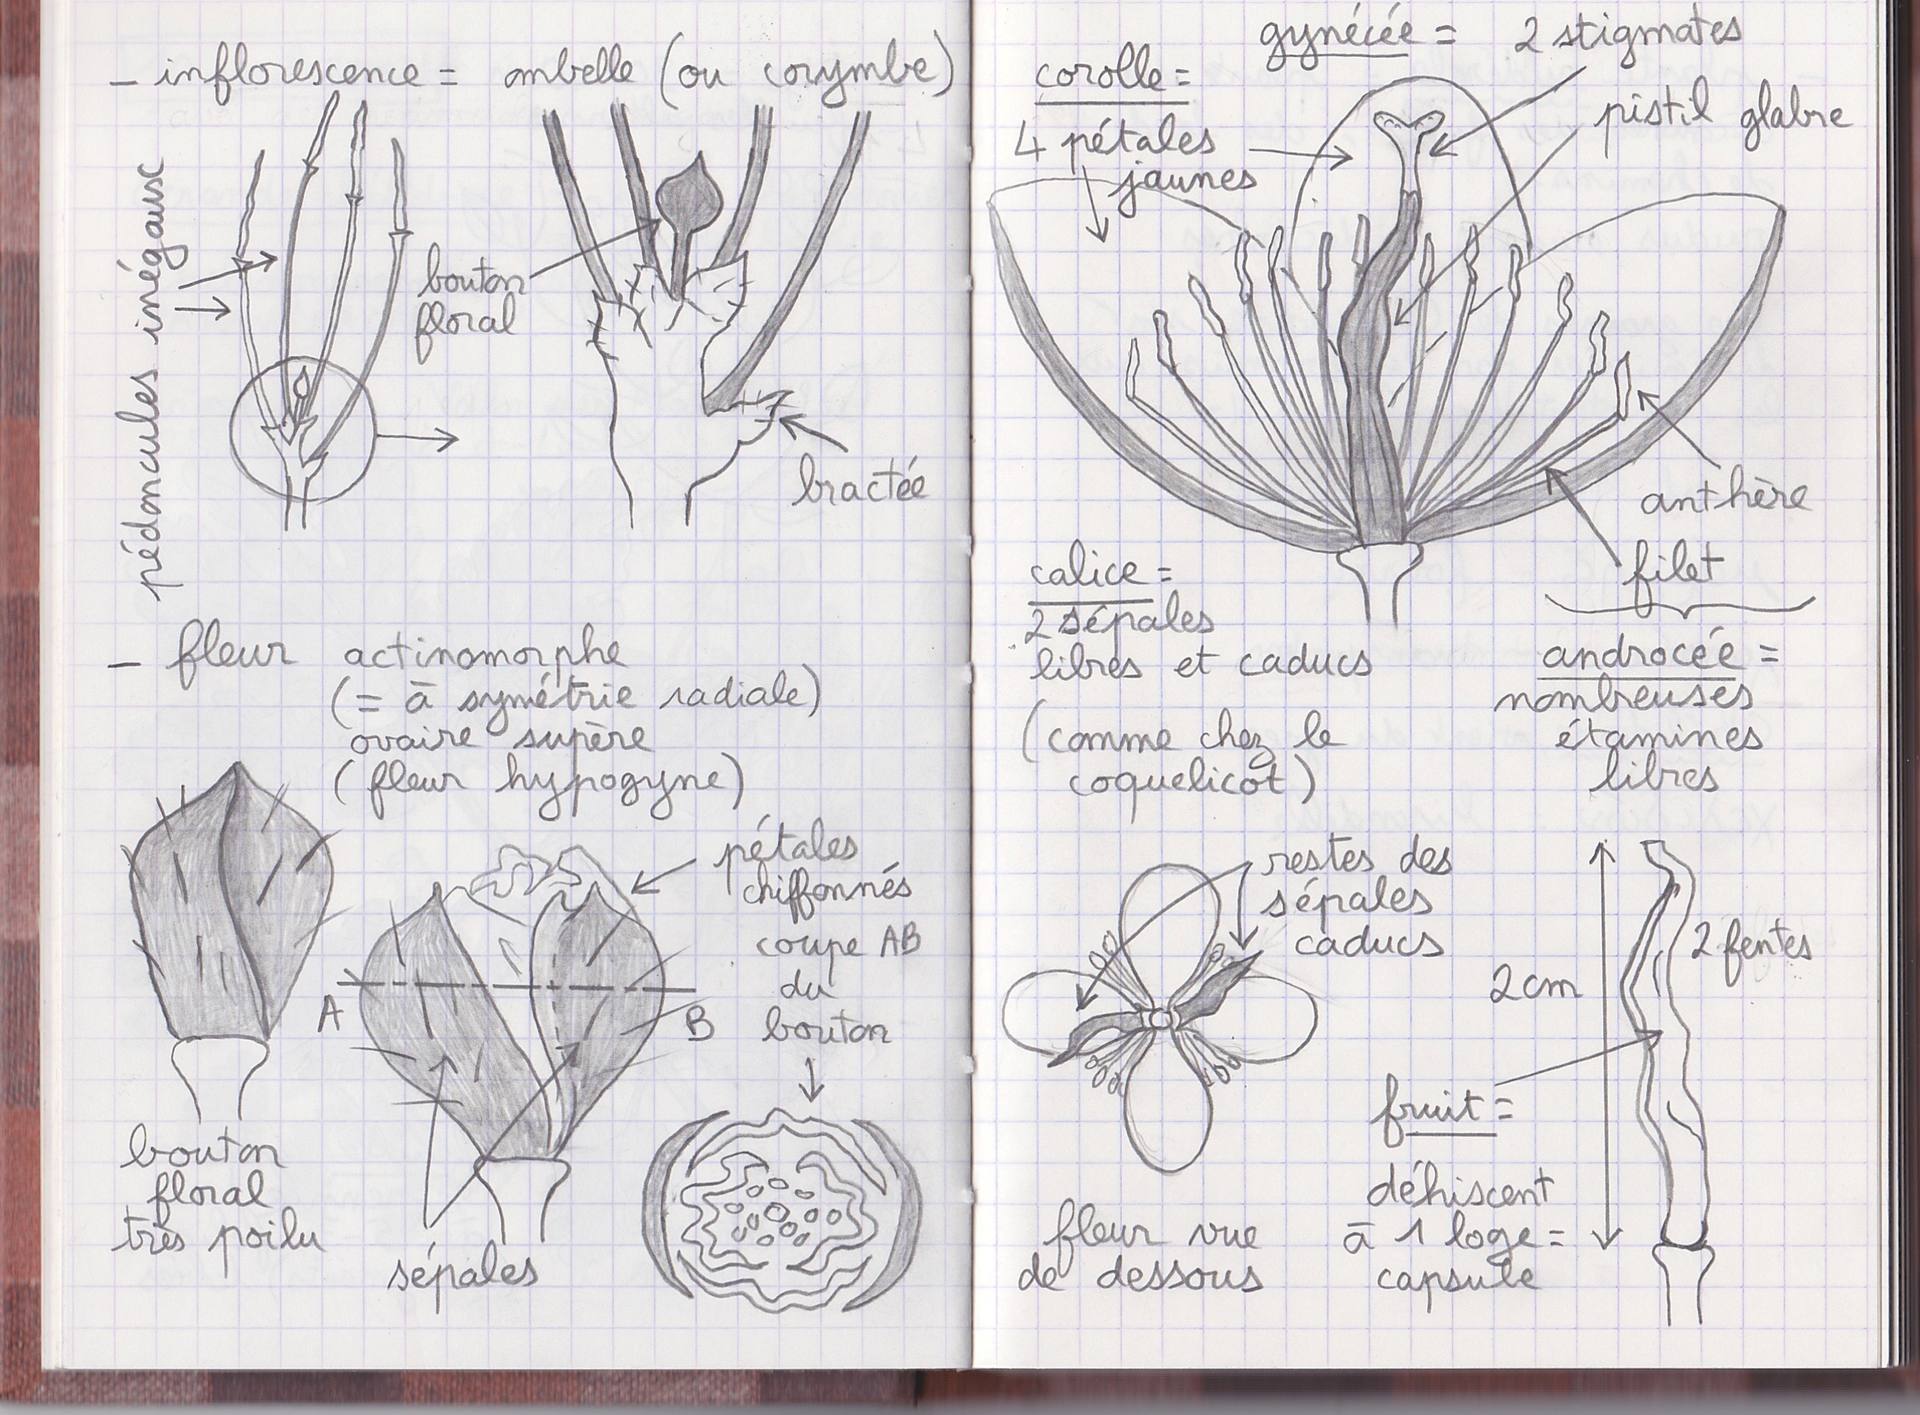 - inflorescence = ombelle (ou corymbe)
pédoncules inégaux
bouton
floral
bractée
- fleur actinomorphe
(= à symétrie radiale)
ovaire supère
(fleur hypogyne)
pétales
chiffonnés
coupe AB
du
bouton
A
B
bouton
floral
très poilu
sépales
gynécée = 2 stigmates
corolle =
4 pétales
jaunes
pistil glabre
anthère
filet
calice =
2 sépales
libres et caducs
(comme chez le
coquelicot)
androcée =
nombreuses
étamines
libres
restes des
sépales
caducs
fleur vue
de dessous
2 fentes
2 cm
fruit =
déhiscent
à 1 loge =
capsule